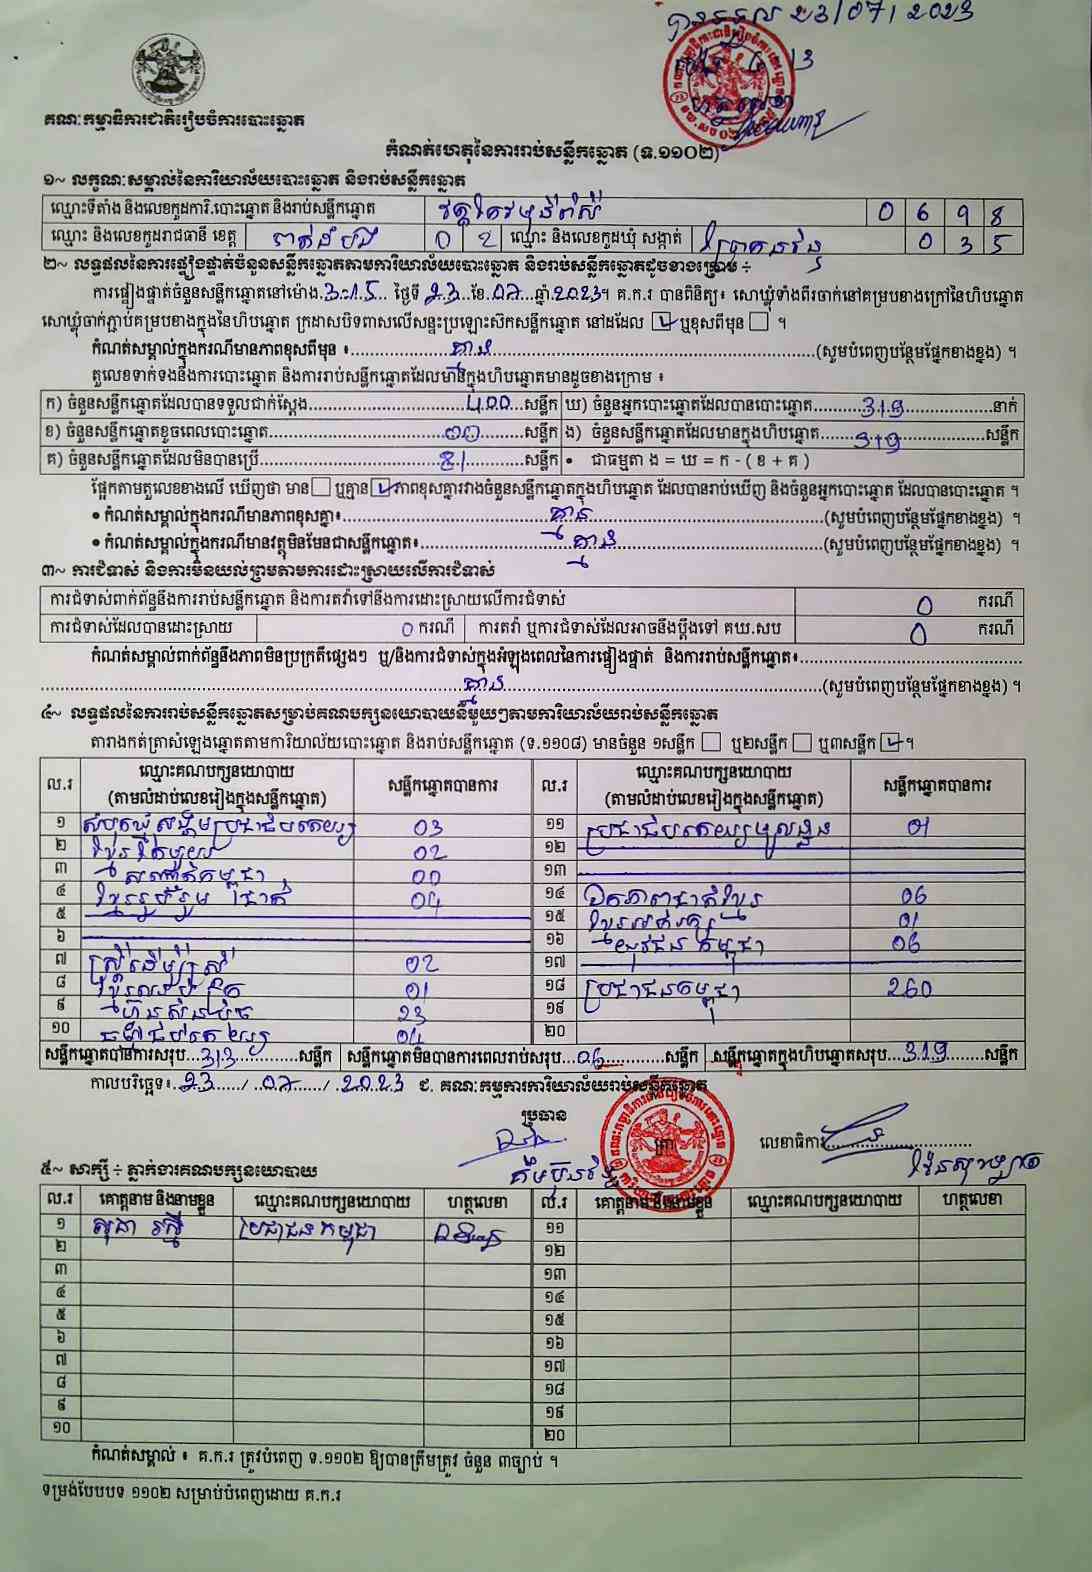 23/07/2023
គណៈកម្មាធិការជាតិរៀបចំការបោះឆ្នោត
កំណត់ហេតុនៃការរាប់សន្លឹកឆ្នោត (ទ.១១០២)
១~ លក្ខណៈសម្គាល់នៃការិយាល័យបោះឆ្នោត និងរាប់សន្លឹកឆ្នោត
ឈ្មោះទីតាំង និងលេខកូដការិ.បោះឆ្នោត និងរាប់សន្លឹកឆ្នោត 0 6 9 8
ឈ្មោះ និងលេខកូដរាជធានី ខេត្ត បាត់ដំបង 0 2 ឈ្មោះ និងលេខកូដឃុំ សង្កាត់ 0 3 5
២~ លទ្ធផលនៃការផ្ទៀងផ្ទាត់ចំនួនសន្លឹកឆ្នោតតាមការិយាល័យបោះឆ្នោត និងរាប់សន្លឹកឆ្នោតដូចខាងក្រោម ÷
ការផ្ទៀងផ្ទាត់ចំនួនសន្លឹកឆ្នោតនៅម៉ោង.3:15... ថ្ងៃទី 23.ខែ.07...ឆ្នាំ.2023។ គ.ក.រ បានពិនិត្យ៖ សោឃ្លុំទាំងពីរចាក់នៅគម្របខាងក្រៅនៃហិបឆ្នោត
សោឃ្លុំចាក់ភ្ជាប់គម្របខាងក្នុងនៃហិបឆ្នោត ក្រដាសបិទពាសលើសន្ទះប្រឡោះស៊កសន្លឹកឆ្នោត នៅដដែល ☑ ឬខុសពីមុន ☐ ។
កំណត់សម្គាល់ក្នុងករណីមានភាពខុសពីមុន ៖ គ្មាន (សូមបំពេញបន្ថែមផ្នែកខាងខ្នង) ។
តួលេខទាក់ទងនឹងការបោះឆ្នោត និងការរាប់សន្លឹកឆ្នោតដែលមានក្នុងហិបឆ្នោតមានដូចខាងក្រោម ៖
ក) ចំនួនសន្លឹកឆ្នោតដែលបានទទួលជាក់ស្តែង 400 សន្លឹក ឃ) ចំនួនអ្នកបោះឆ្នោតដែលបានបោះឆ្នោត 319 នាក់
ខ) ចំនួនសន្លឹកឆ្នោតខូចពេលបោះឆ្នោត 00 សន្លឹក ង) ចំនួនសន្លឹកឆ្នោតដែលមានក្នុងហិបឆ្នោត 319 សន្លឹក
គ) ចំនួនសន្លឹកឆ្នោតដែលមិនបានប្រើ 81 សន្លឹក • ជាធម្មតា ង = ឃ = ក - ( ខ + គ )
ផ្អែកតាមតួលេខខាងលើ ឃើញថា មាន ☐ ឬគ្មាន ☑ ភាពខុសគ្នារវាងចំនួនសន្លឹកឆ្នោតក្នុងហិបឆ្នោត ដែលបានរាប់ឃើញ និងចំនួនអ្នកបោះឆ្នោត ដែលបានបោះឆ្នោត ។
• កំណត់សម្គាល់ក្នុងករណីមានភាពខុសគ្នា៖ គ្មាន (សូមបំពេញបន្ថែមផ្នែកខាងខ្នង) ។
• កំណត់សម្គាល់ក្នុងករណីមានវត្ថុមិនមែនជាសន្លឹកឆ្នោត៖ គ្មាន (សូមបំពេញបន្ថែមផ្នែកខាងខ្នង) ។
៣~ ការជំទាស់ និងការមិនយល់ព្រមតាមការដោះស្រាយលើការជំទាស់
ការជំទាស់ពាក់ព័ន្ធនឹងការរាប់សន្លឹកឆ្នោត និងការតវ៉ាទៅនឹងការដោះស្រាយលើការជំទាស់ 0 ករណី
ការជំទាស់ដែលបានដោះស្រាយ 0 ករណី ការតវ៉ា ឬការជំទាស់ដែលអាចនឹងប្តឹងទៅ គឃ.សប 0 ករណី
កំណត់សម្គាល់ពាក់ព័ន្ធនឹងភាពមិនប្រក្រតីផ្សេងៗ ឬ/និងការជំទាស់ក្នុងអំឡុងពេលនៃការផ្ទៀងផ្ទាត់ និងការរាប់សន្លឹកឆ្នោត៖
គ្មាន (សូមបំពេញបន្ថែមផ្នែកខាងខ្នង) ។
៤~ លទ្ធផលនៃការរាប់សន្លឹកឆ្នោតសម្រាប់គណបក្សនយោបាយនីមួយៗតាមការិយាល័យរាប់សន្លឹកឆ្នោត
តារាងកត់ត្រាសំឡេងឆ្នោតតាមការិយាល័យបោះឆ្នោត និងរាប់សន្លឹកឆ្នោត (ទ.១១០៨) មានចំនួន ១សន្លឹក ☐ ឬ២សន្លឹក ☐ ឬ៣សន្លឹក ☑ ។
ល.រ ឈ្មោះគណបក្សនយោបាយ (តាមលំដាប់លេខរៀងក្នុងសន្លឹកឆ្នោត) សន្លឹកឆ្នោតបានការ ល.រ ឈ្មោះគណបក្សនយោបាយ (តាមលំដាប់លេខរៀងក្នុងសន្លឹកឆ្នោត) សន្លឹកឆ្នោតបានការ
១ សំបុកឃ្មុំសង្គមប្រជាធិបតេយ្យ 03 ១១ ប្រជាធិបតេយ្យមូលដ្ឋាន 01
២ ខ្មែរតែមួយ 02 ១២
៣ សញ្ជាតិកម្ពុជា 00 ១៣
៤ ខ្មែររួបរួមជាតិ 04 ១៤ ឯកភាពជាតិខ្មែរ 06
៥ ១៥ ខ្មែរអភិរក្ស 01
៦ ១៦ យុវជនកម្ពុជា 06
៧ ស្ត្រីដើម្បីស្ត្រី 02 ១៧
៨ 01 ១៨ ប្រជាជនកម្ពុជា 260
៩ ហ៊្វុនស៊ិនប៉ិច 23 ១៩
១០ 04 ២០
សន្លឹកឆ្នោតបានការសរុប 313 សន្លឹក សន្លឹកឆ្នោតមិនបានការពេលរាប់សរុប 06 សន្លឹក សន្លឹកឆ្នោតក្នុងហិបឆ្នោតសរុប 319 សន្លឹក
កាលបរិច្ឆេទ៖ 23 / 07 / 2023 ជ. គណៈកម្មការការិយាល័យរាប់សន្លឹកឆ្នោត
ប្រធាន
លេខាធិការ
៥~ សាក្សី ÷ ភ្នាក់ងារគណបក្សនយោបាយ
ល.រ គោត្តនាម និងនាមខ្លួន ឈ្មោះគណបក្សនយោបាយ ហត្ថលេខា ល.រ គោត្តនាម និងនាមខ្លួន ឈ្មោះគណបក្សនយោបាយ ហត្ថលេខា
១ ប្រជាជនកម្ពុជា ១១
២ ១២
៣ ១៣
៤ ១៤
៥ ១៥
៦ ១៦
៧ ១៧
៨ ១៨
៩ ១៩
១០ ២០
កំណត់សម្គាល់ ៖ គ.ក.រ ត្រូវបំពេញ ទ.១១០២ ឱ្យបានត្រឹមត្រូវ ចំនួន ៣ច្បាប់ ។
ទម្រង់បែបបទ ១១០២ សម្រាប់បំពេញដោយ គ.ក.រ